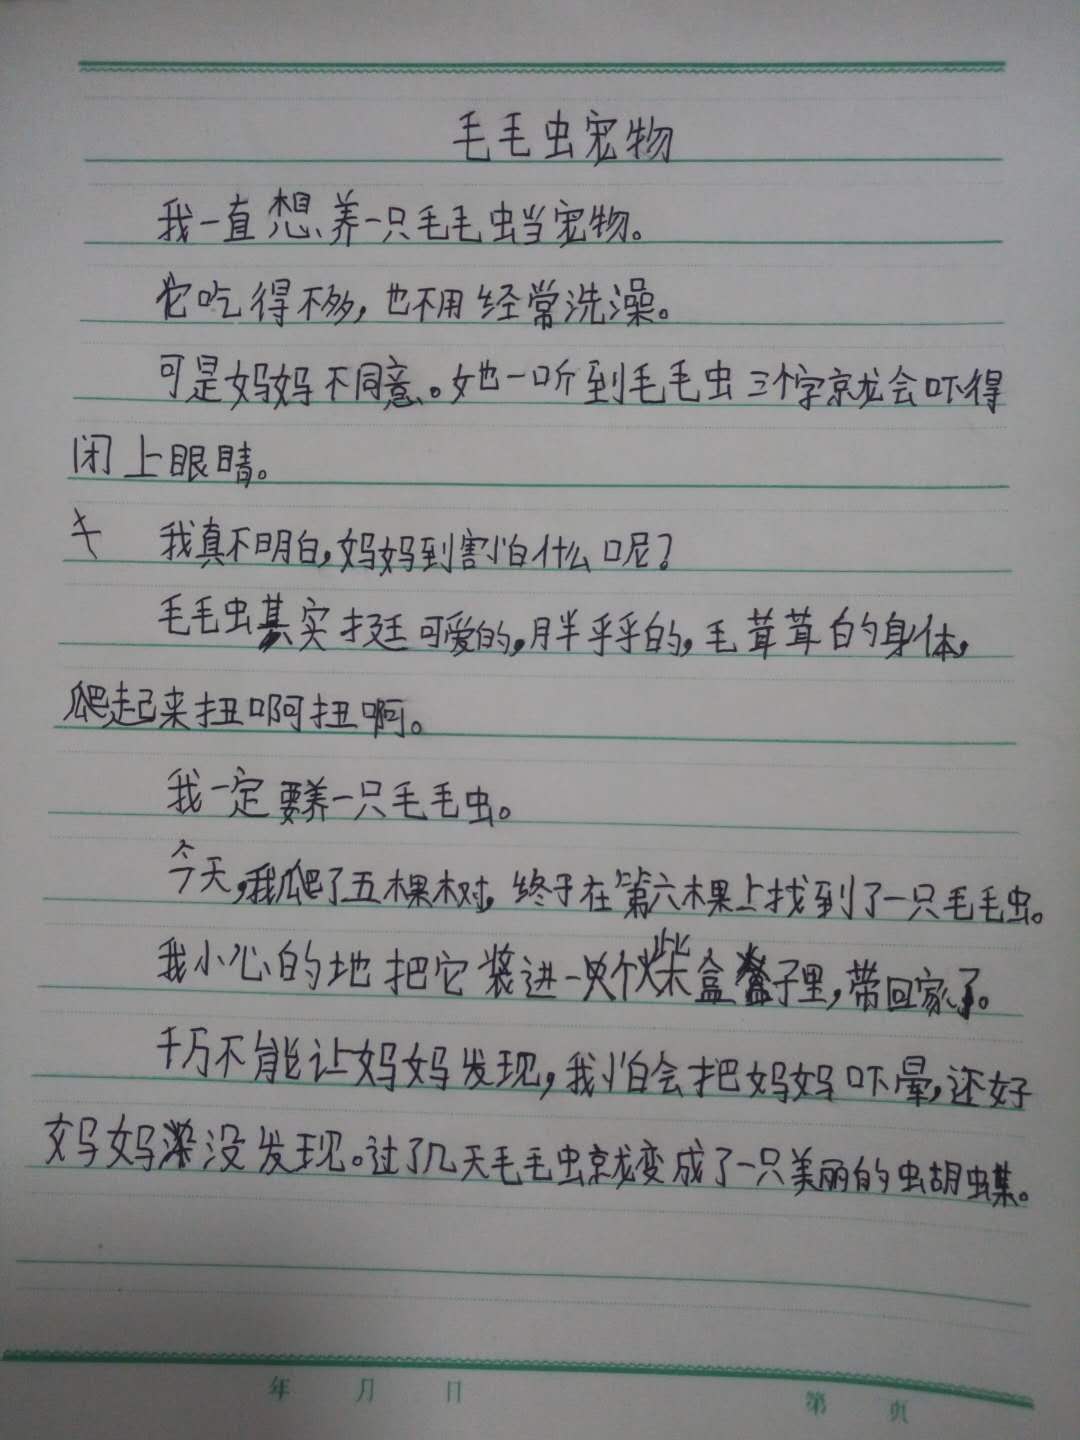 毛毛虫宠物
我一直想养一只毛毛虫当宠物。
它吃得不多，也不用经常洗澡。
可是妈妈不同意。她一听到毛毛虫三个字就会吓得
闭上眼睛。
我真不明白，妈妈到害怕什么呢？
毛毛虫其实挺可爱的，胖乎乎的，毛茸茸的身体，
爬起来扭啊扭啊。
我一定要养一只毛毛虫。
今天，我爬了五棵树，终于在第六棵上找到了一只毛毛虫。
我小心的地把它装进一个火柴盒子里，带回家了。
千万不能让妈妈发现，我怕会把妈妈吓晕，还好
妈妈没发现。过了几天毛毛虫就变成了一只美丽的蝴蝶。
年 月 日
第 页